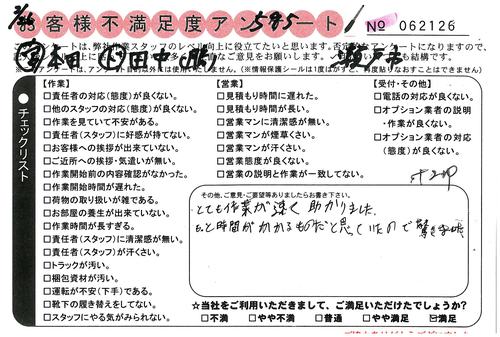 お客様不満足度アンケート
595
№ 062126
本田 田中
【作業】
□責任者の対応(態度)が良くない。
□他のスタッフの対応(態度)が良くない。
□作業を見ていて不安がある。
□責任者(スタッフ)に好感が持てない。
□お客様への挨拶が出来ていない。
□ご近所への挨拶・気遣いが無い。
□作業開始前の内容確認がなかった。
□作業開始時間が遅れた。
□荷物の取り扱いが雑である。
□お部屋の養生が出来ていない。
□作業時間が長すぎる。
□責任者(スタッフ)に清潔感が無い。
□責任者(スタッフ)が汗くさい。
□トラックが汚い。
□梱包資材が汚い。
□運転が不安(下手)である。
□靴下の履き替えをしてない。
□スタッフにやる気がみられない。
【営業】
□見積もり時間に遅れた。
□見積もり時間が長い。
□営業マンに清潔感が無い。
□営業マンが煙草くさい。
□営業マンが汗くさい。
□営業態度が良くない。
□営業の説明と作業が一致してない。
【受付・その他】
□電話の対応が良くない。
□オプション業者の説明
・作業が良くない。
□オプション業者の対応
(態度)が良くない。
●チェックリスト
その他、ご意見・ご要望等ありましたらお書き下さい。
とても作業が速く助かりました。
もっと時間がかかるものだと思っていたので驚きました。
☆当社をご利用いただきまして、ご満足いただけたでしょうか?
□不満 □やや不満 □普通 □やや満足 ☑満足